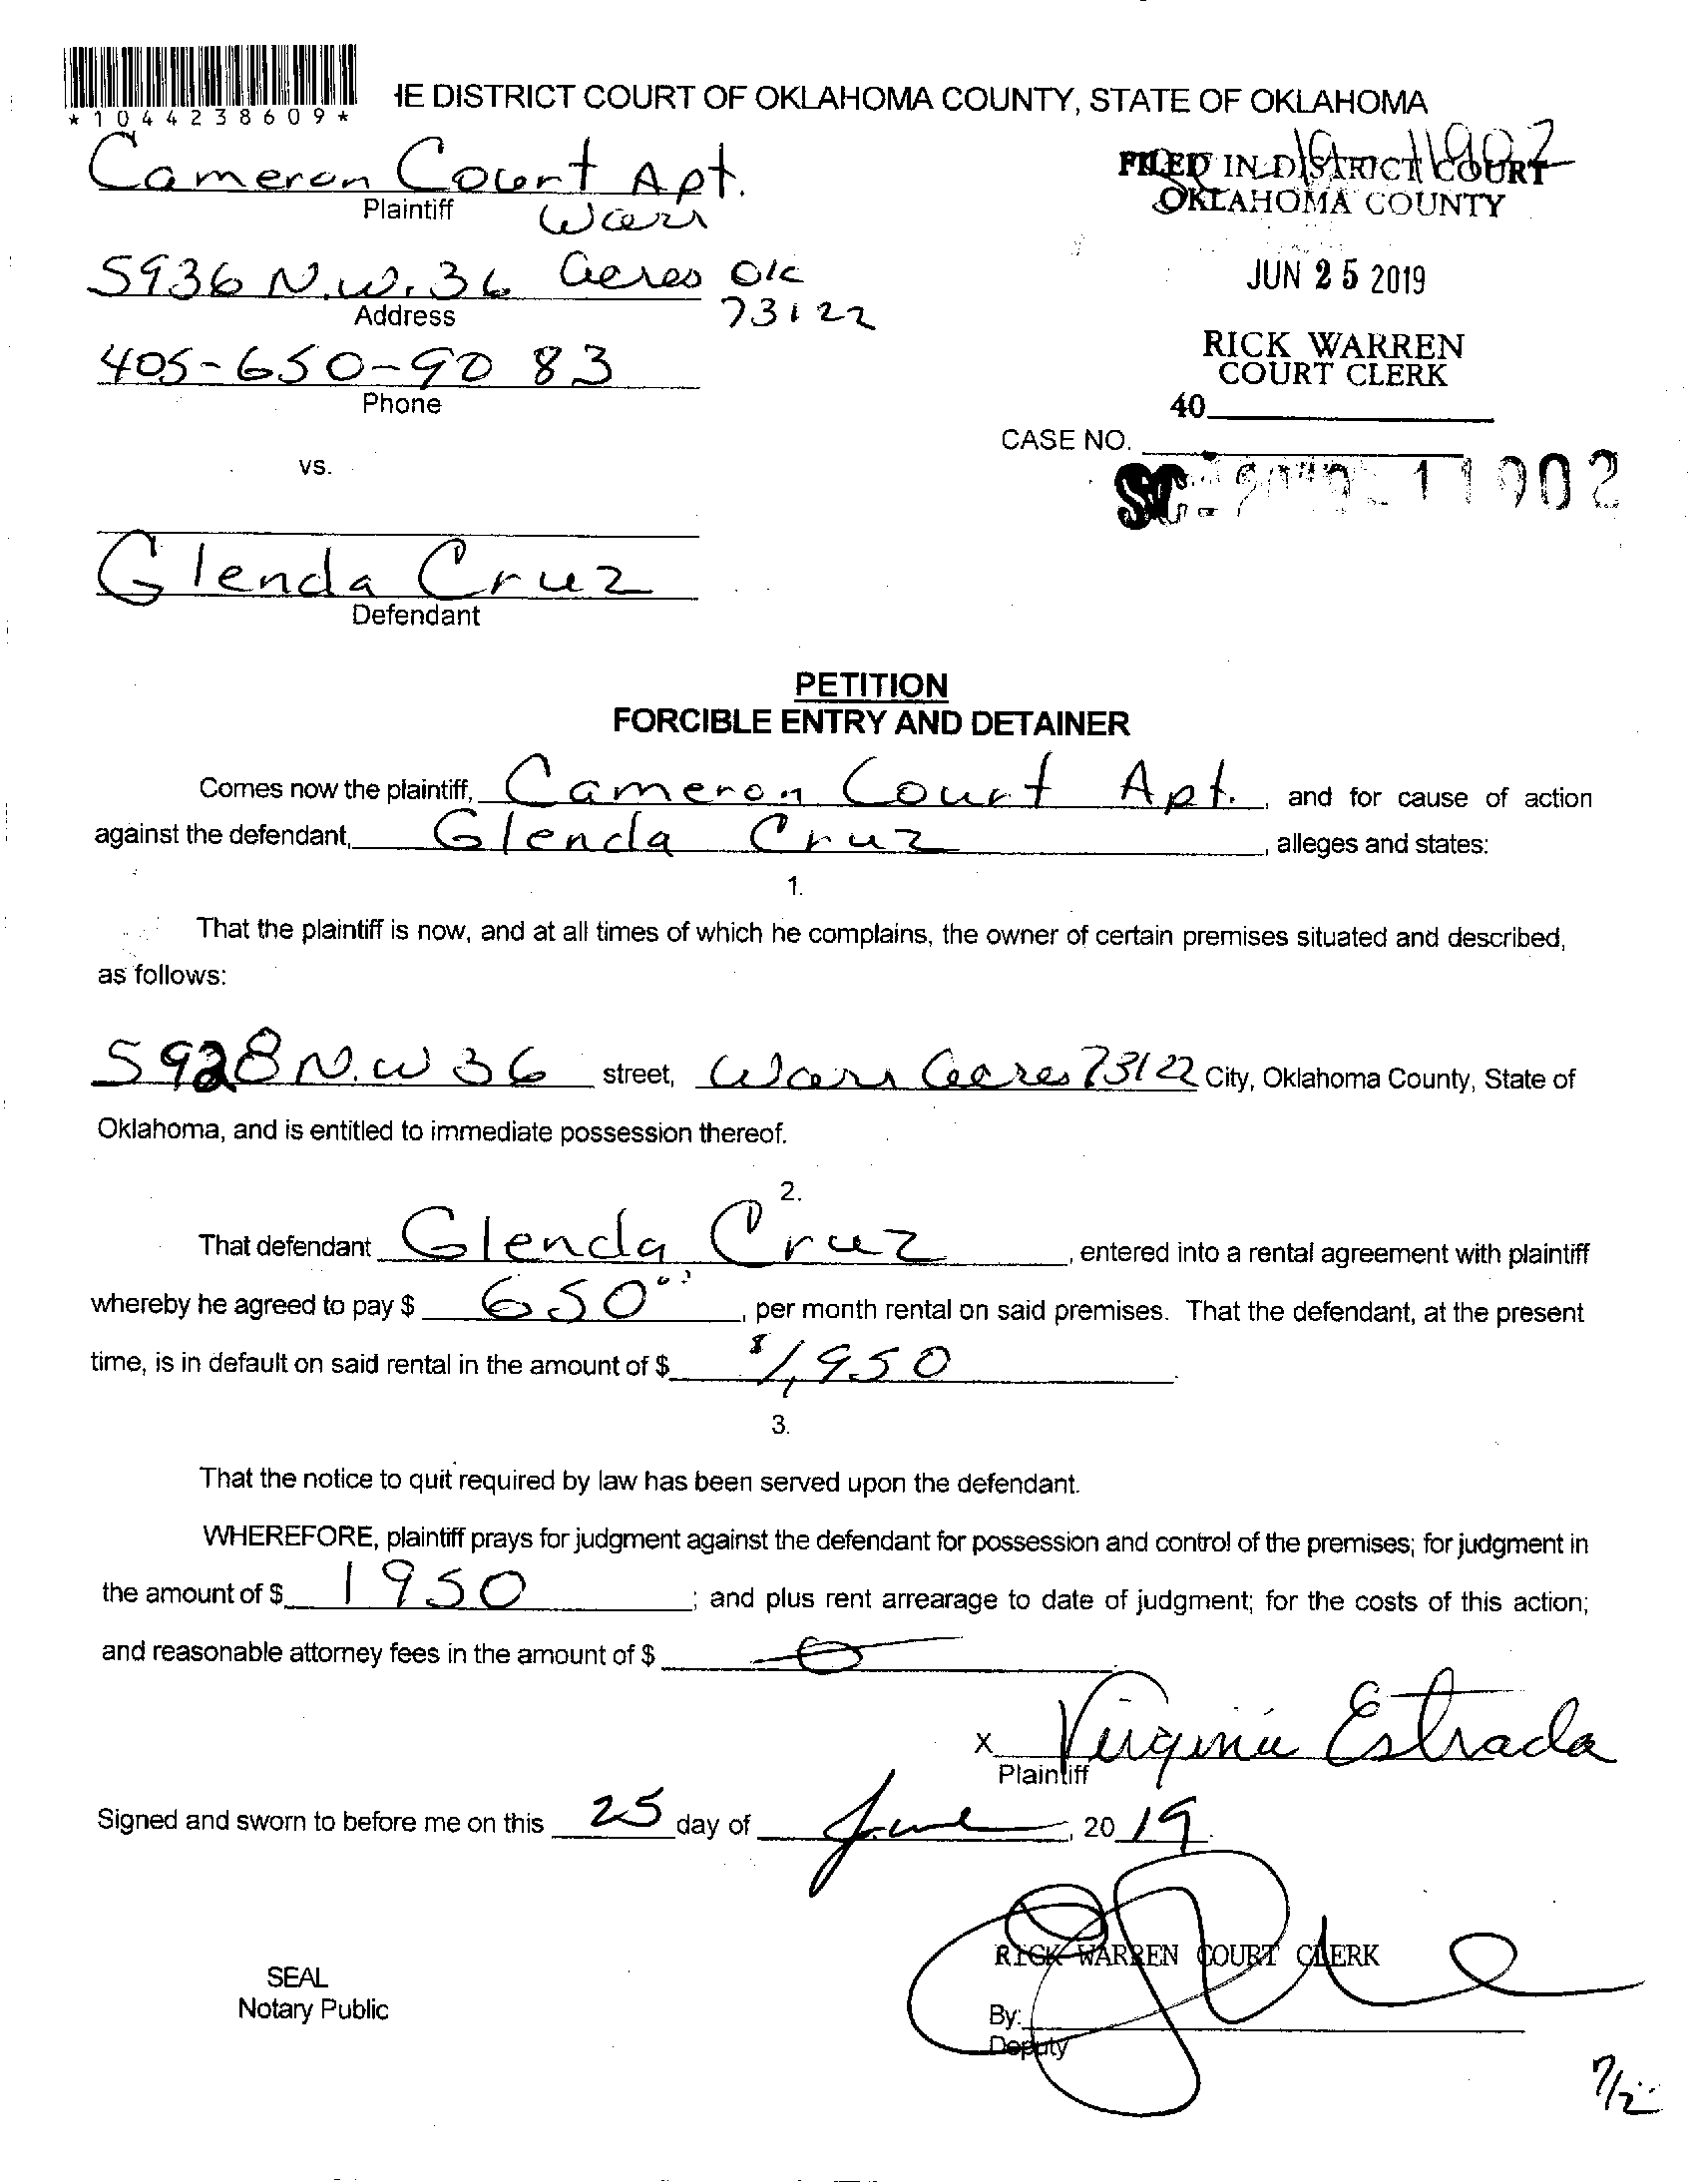 *1044238609*
IE DISTRICT COURT OF OKLAHOMA COUNTY, STATE OF OKLAHOMA
Cameron Court Apt.
Plaintiff
Warr
5936 N.W. 36 Acres Ok
73122
Address
405-650-9083
Phone
19-11902
FILED IN DISTRICT COURT
OKLAHOMA COUNTY
JUN 25 2019
RICK WARREN
COURT CLERK
40
CASE NO.
SC-2019-11902
vs.
Glenda Cruz
Defendant
PETITION
FORCIBLE ENTRY AND DETAINER
Comes now the plaintiff, Cameron Court Apt., and for cause of action
against the defendant, Glenda Cruz, alleges and states:
1.
That the plaintiff is now, and at all times of which he complains, the owner of certain premises situated and described,
as follows:
5928 N.W 36 street, Warr Acres 73122 City, Oklahoma County, State of
Oklahoma, and is entitled to immediate possession thereof.
2.
That defendant Glenda Cruz, entered into a rental agreement with plaintiff
whereby he agreed to pay $ 650⁰⁰, per month rental on said premises. That the defendant, at the present
time, is in default on said rental in the amount of $ $1,950.
3.
That the notice to quit required by law has been served upon the defendant.
WHEREFORE, plaintiff prays for judgment against the defendant for possession and control of the premises; for judgment in
the amount of $ 1950; and plus rent arrearage to date of judgment; for the costs of this action;
and reasonable attorney fees in the amount of $ 0.
x Virginia Estrada
Plaintiff
Signed and sworn to before me on this 25 day of June, 2019.
RICK WARREN COURT CLERK
SEAL
Notary Public
By:
Deputy
7/2